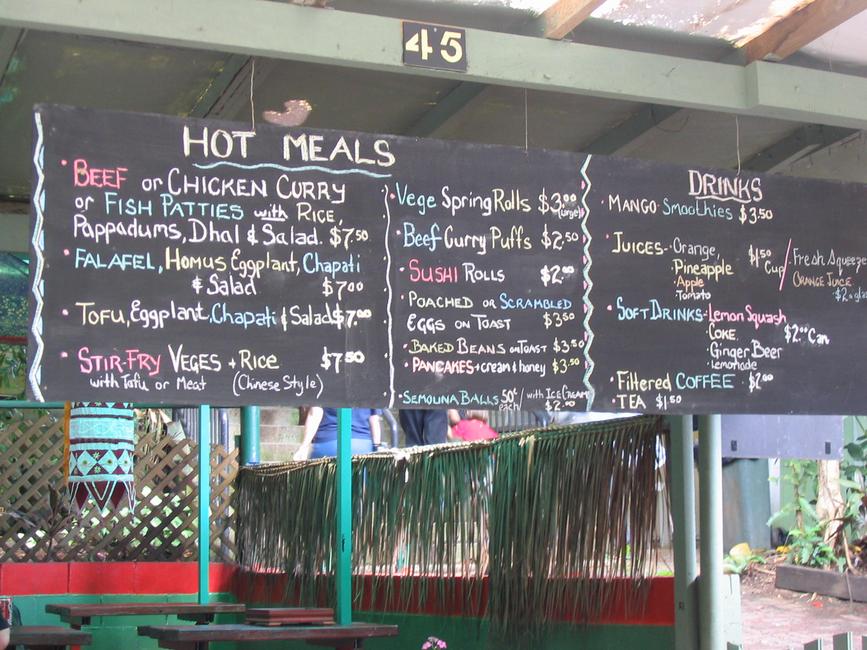 45
HOT MEALS
BEEF or CHICKEN CURRY
or FISH PATTIES with RICE,
Pappadums, Dhal & Salad. $7.50
FALAFEL, Homus Eggplant, Chapati
& Salad $7.00
TOFU, Eggplant, Chapati & Salad $7.00
STIR-FRY VEGES + RICE $7.50
with Tafu or Meat (Chinese Style)
Vege Spring Rolls $3.00
(large)
Beef Curry Puffs $2.50
SUSHI ROLLS $2.00
POACHED OR SCRAMBLED
EGGS ON TOAST $3.50
BAKED BEANS ON TOAST $3.50
PANCAKES + cream & honey $3.50
SEMOLINA BALLS 50¢ each / with ICE CREAM $2.00
DRINKS
MANGO Smoothies $3.50
JUICES - Orange
Pineapple
Apple
Tomato
$1.50 Cup
Fresh Squeeze
ORANGE JUICE
SOFT DRINKS - Lemon Squash
COKE
Ginger Beer
Lemonade
$2.00 Can
Filtered COFFEE $2.00
TEA $1.50